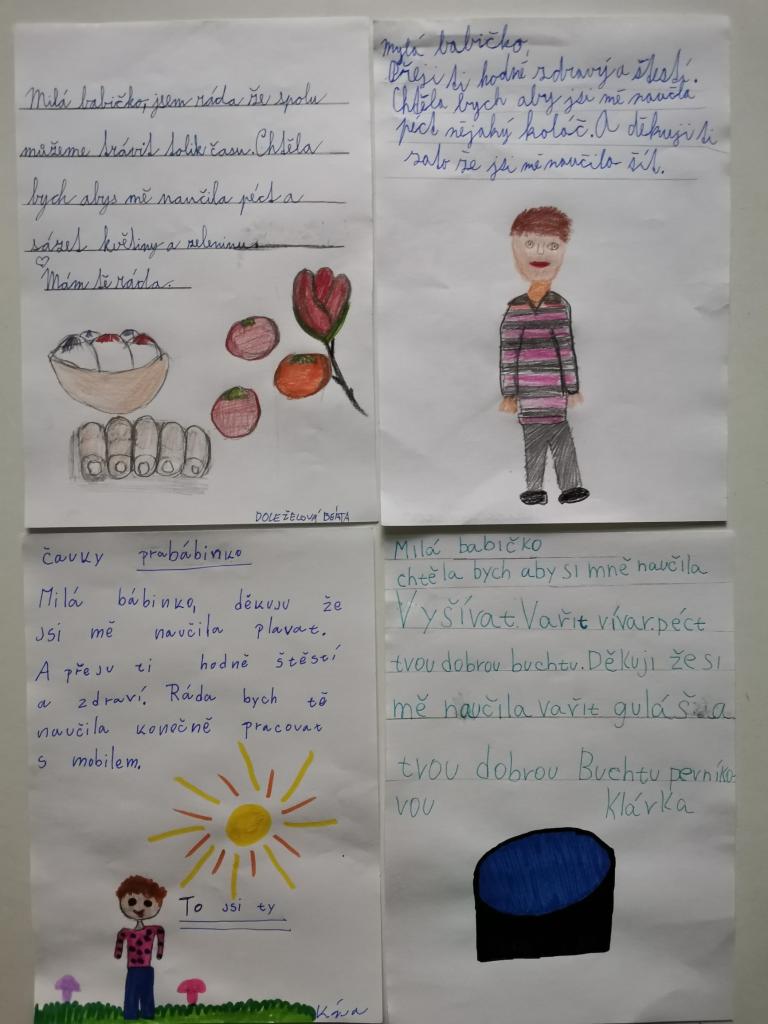 Milá babičko, jsem ráda že spolu
můžeme trávit tolik času. Chtěla
bych abys mě naučila péct a
sázet květiny a zeleninu
Mám tě ráda.
DOLEŽELOVÁ BEÁTA
Mylá babičko,
Přeji ti hodně zdravý a štestí.
Chtěla bych aby jsi mě naučla
péct nějaký koláč. A děkuji ti
zato že jsi mě naučila šít.
čauky prabábinko
Milá bábinko, děkuju že
jsi mě naučila plavat.
A přeju ti hodně štěstí
a zdraví. Ráda bych tě
naučila konečně pracovat
s mobilem.
To jsi ty
Milá babičko
chtěla bych aby si mně naučila
Vyšívat. Vařit vívar. péct
tvou dobrou buchtu. Děkuji že si
mě naučila vařit guláš a
tvou dobrou Buchtu perníko
vou Klárka